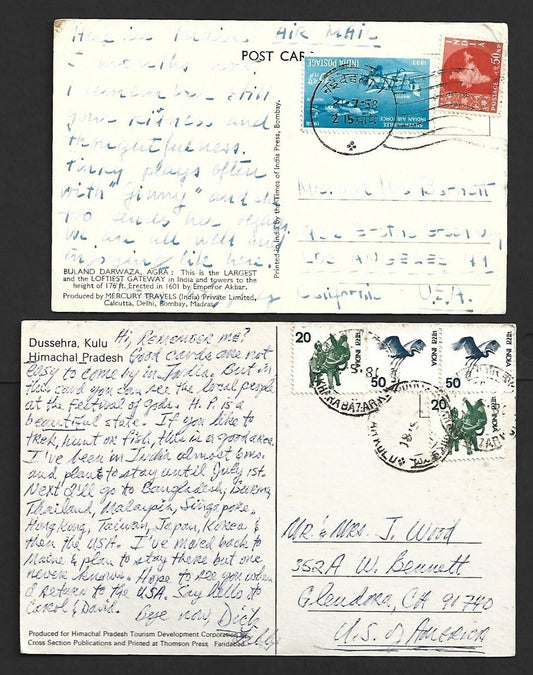 Are in India AIR MAIL
POST CARD
months now
I remember still
your kitness and
thoughtfulness.
plays often
with "Jinny" and
We are all well and
like here.
Printed in India by the Times of India Press, Bombay.
Mr. and Mrs Bennett
LOS ANGELES
California U.S.A.
BULAND DARWAZA, AGRA : This is the LARGEST
and the LOFTIEST GATEWAY in India and towers to the
height of 176 ft. Erected in 1601 by Emperor Akbar.
Produced by MERCURY TRAVELS (India) Private Limited,
Calcutta, Delhi, Bombay, Madras.
INDIA POSTAGE
SILVER JUBILEE
INDIAN AIR FORCE
1933
1958
INDIA
POSTAGE
50
Dussehra, Kulu
Himachal Pradesh
Hi, Remember me?
Good cards are not
easy to come by in India. But in
this card you can see the local people
at the Festival of gods. H. P. is a
beautiful state. If you like to
trek, hunt or fish, this is a good area.
I've been in India almost 6 mos.
and plan to stay until July 1st.
Next I'll go to Bangladesh, Burma,
Thailand, Malaysia, Singapore,
Hong Kong, Taiwan, Japan, Korea &
then the USA. I've moved back to
Maine & plan to stay there but one
never knows. Hope to see you when
I return to the USA. Say hello to
Carol & Dave.
Bye now, Dick
Produced for Himachal Pradesh Tourism Development Corporation
Cross Section Publications and Printed at Thomson Press Faridabad.
20
50
भारत INDIA
50
भारत INDIA
20
Mr. & Mrs. J. Wood
352A W. Bennett
Glendora, CA 91740
U.S. of AMERICA